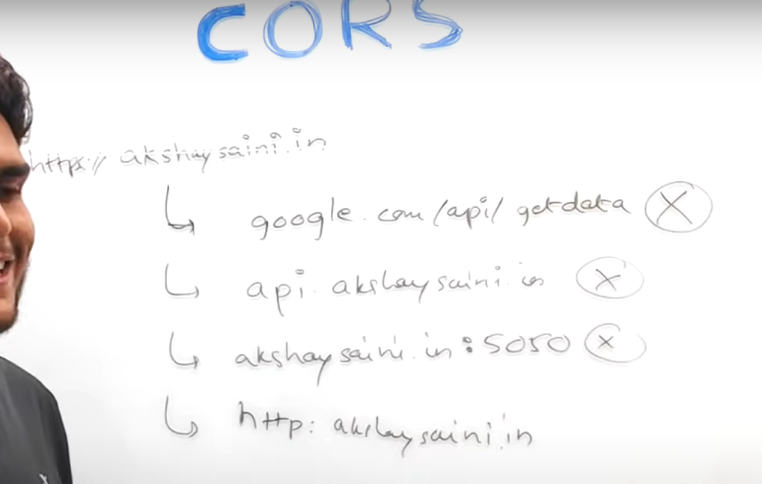 CORS
https:// akshaysaini.in
↳ google.com/api/getdata X
↳ api.akshaysaini.in X
↳ akshaysaini.in:5050 X
↳ http: akshaysaini.in